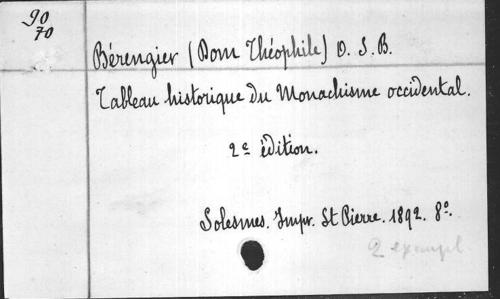 90
70
Bérengier (Dom Théophile) O. S. B.
Tableau historique du Monachisme occidental.
2e édition.
Solesmes. Impr. St Pierre. 1892. 8o.
2 exempl